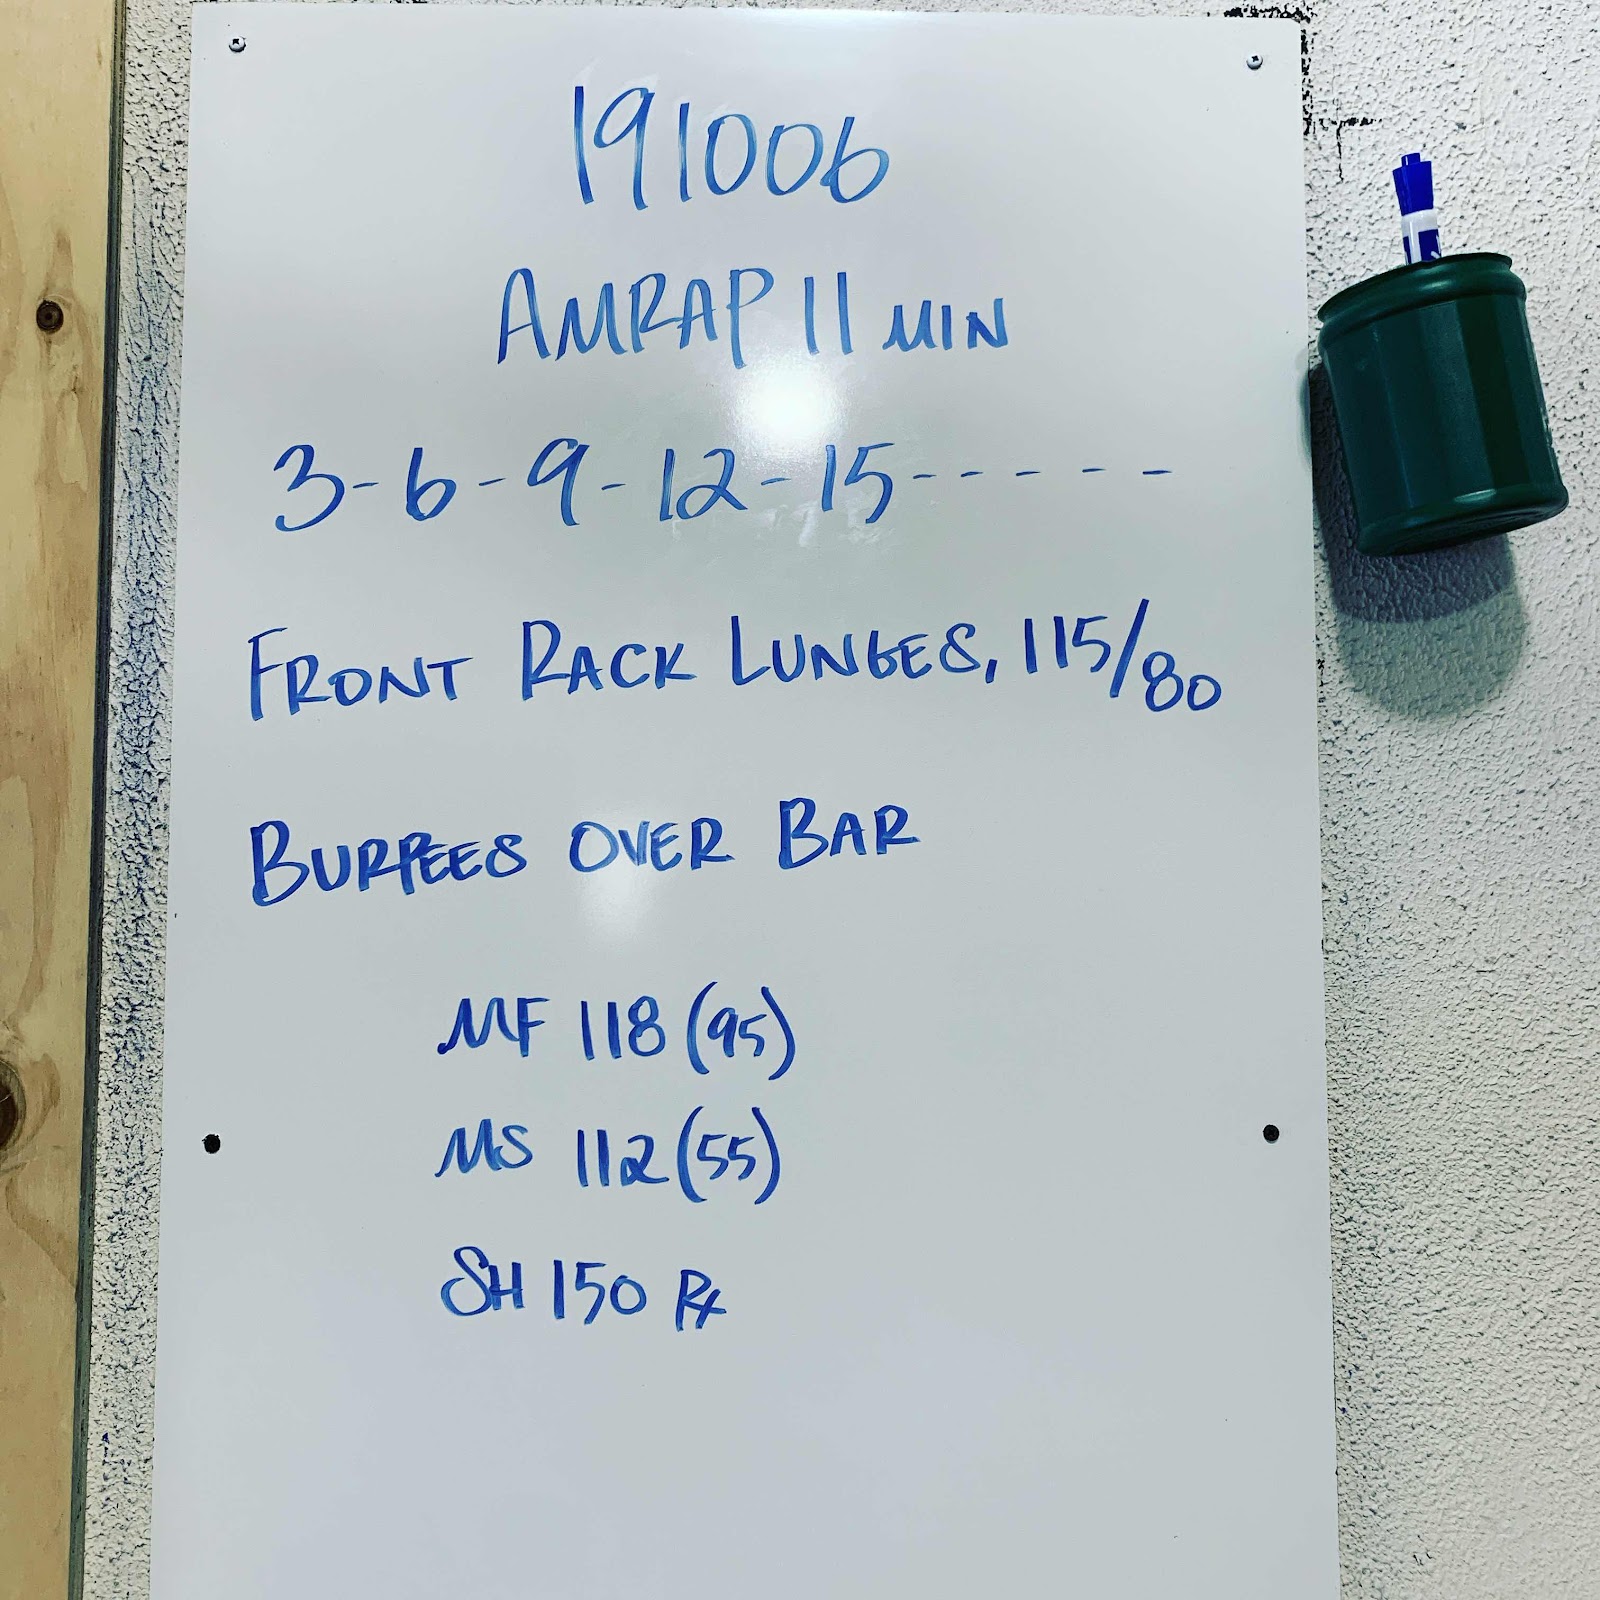 191006
AMRAP 11 MIN
3-6-9-12-15-----
FRONT RACK LUNGES, 115/80
BURPEES OVER BAR
MF 118 (95)
MS 112 (55)
SH 150 Rx